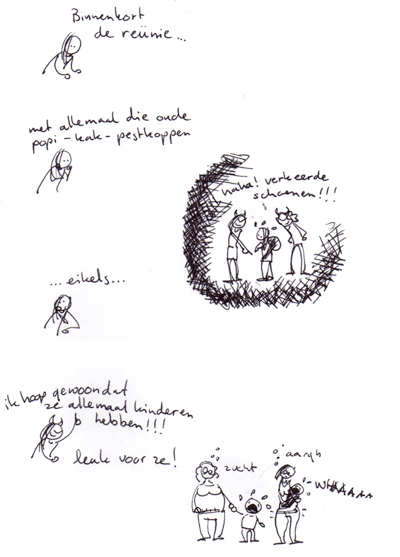 Binnenkort
de reünie...
met allemaal die oude
popi-kak-pestkoppen
haha! verkeerde
schoenen!!!
...eikels...
ik hoop gewoon dat
ze allemaal kinderen
hebben!!!
leuk voor ze!
zucht
aargh
WHAAAAA